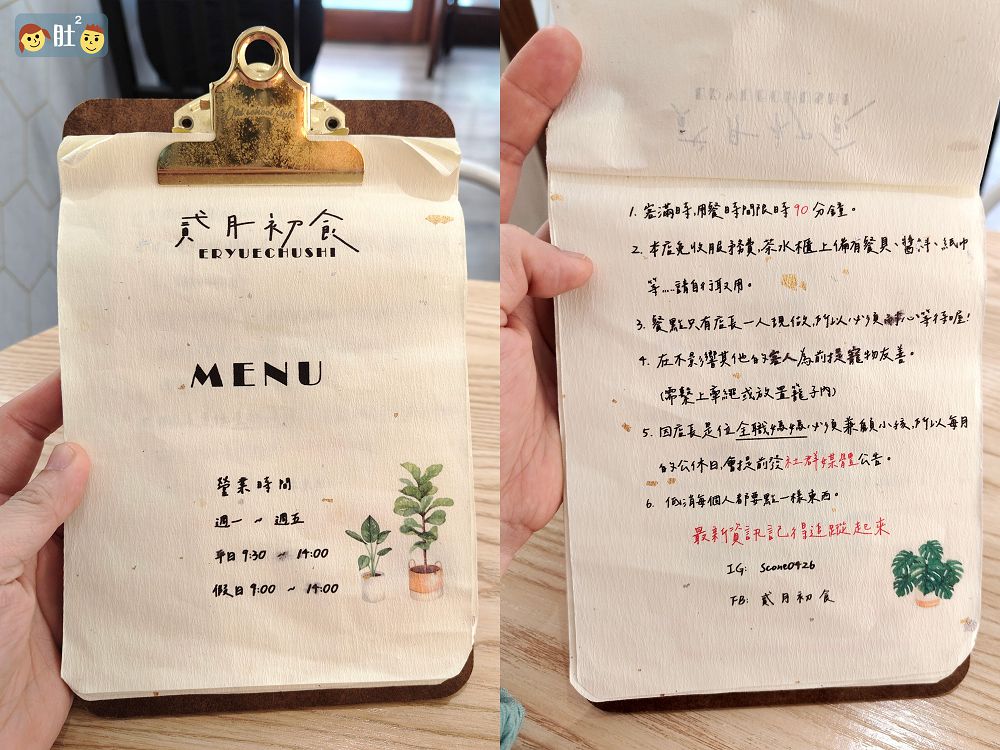 肚2
Old school style
貳月初食
ERYUECHUSHI
MENU
營業時間
週一 ~ 週五
平日 9:30 ~ 14:00
假日 9:00 ~ 14:00
1. 客滿時,用餐時間限時90分鐘。
2. 本店免收服務費,茶水櫃上備有餐具、醬料、紙巾
等.....請自行取用。
3. 餐點只有店長一人現做,所以必須耐心等待喔!
4. 在不影響其他的客人為前提寵物友善。
(需繫上牽繩或放置籠子內)
5. 因店長是位全職媽媽,必須兼顧小孩,所以每月
的公休日,會提前發社群媒體公告。
6. 低消每個人都要點一樣東西。
最新資訊記得追蹤起來
IG: Scone0426
FB: 貳月初食